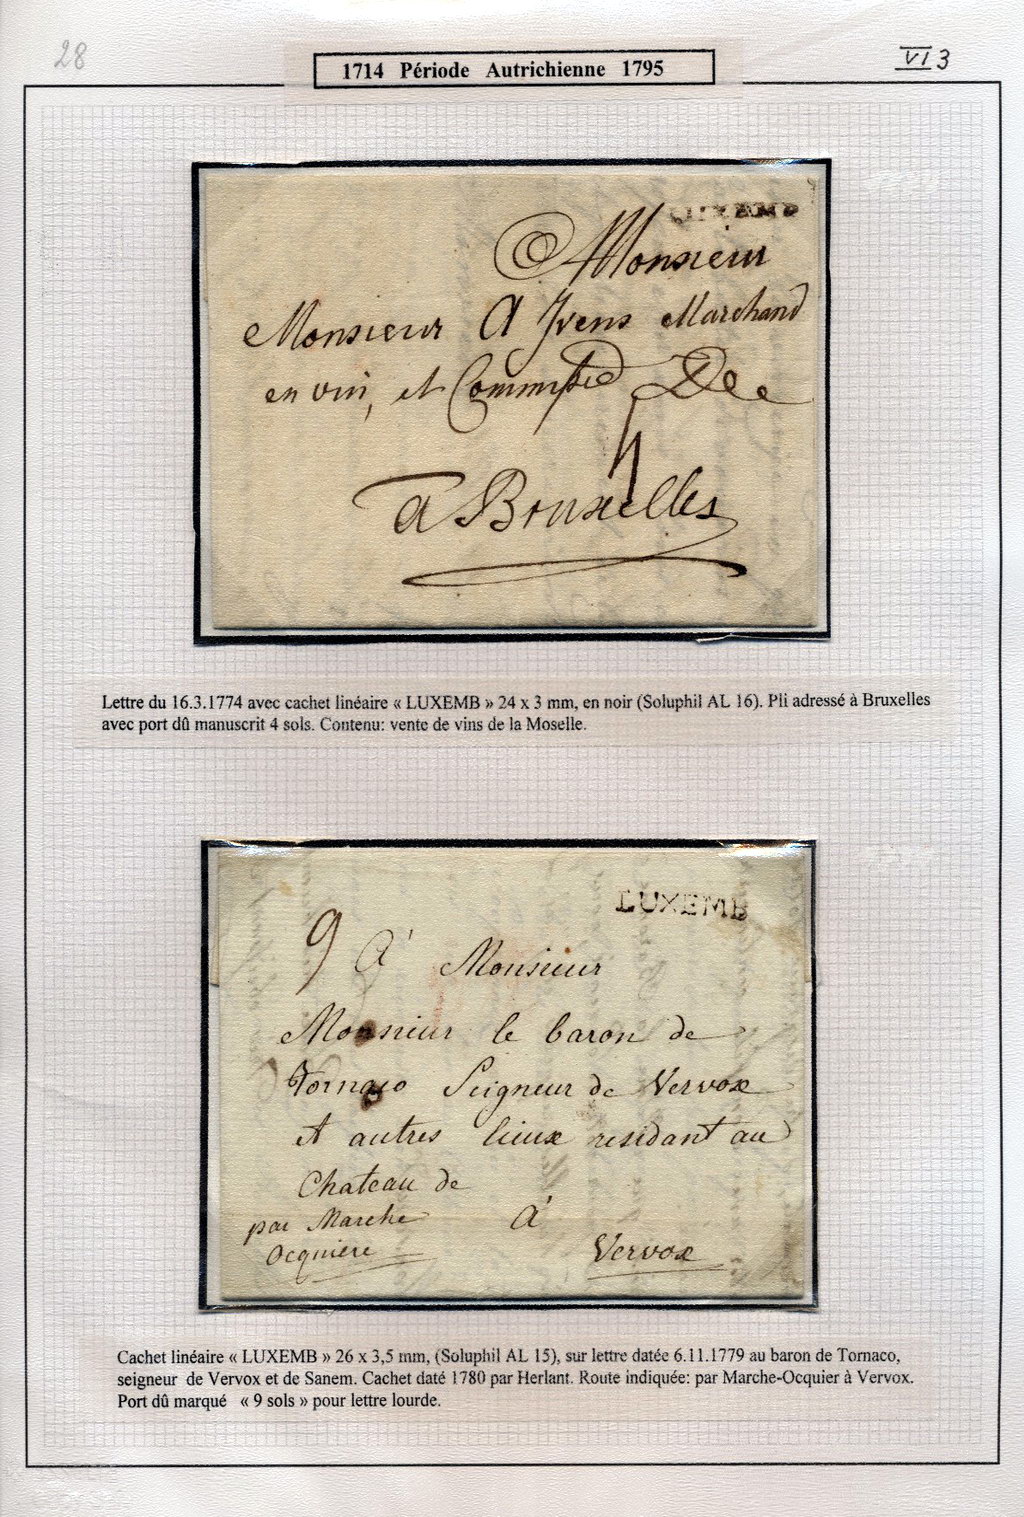 28
VI 3
1714 Période Autrichienne 1795
LUXEMB
Monsieur
Monsieur A Ivens Marchand
en vin, et De
4
a Bruxelles
Lettre du 16.3.1774 avec cachet linéaire « LUXEMB » 24 x 3 mm, en noir (Soluphil AL 16). Pli adressé à Bruxelles
avec port dû manuscrit 4 sols. Contenu: vente de vins de la Moselle.
LUXEMB
9 A' Monsieur
Monsieur le baron de
Tornaco Seigneur de Vervox
et autres lieux residant au
Chateau de
par Marche A'
Ocquiere Vervox
Cachet linéaire « LUXEMB » 26 x 3,5 mm, (Soluphil AL 15), sur lettre datée 6.11.1779 au baron de Tornaco,
seigneur de Vervox et de Sanem. Cachet daté 1780 par Herlant. Route indiquée: par Marche-Ocquier à Vervox.
Port dû marqué « 9 sols » pour lettre lourde.